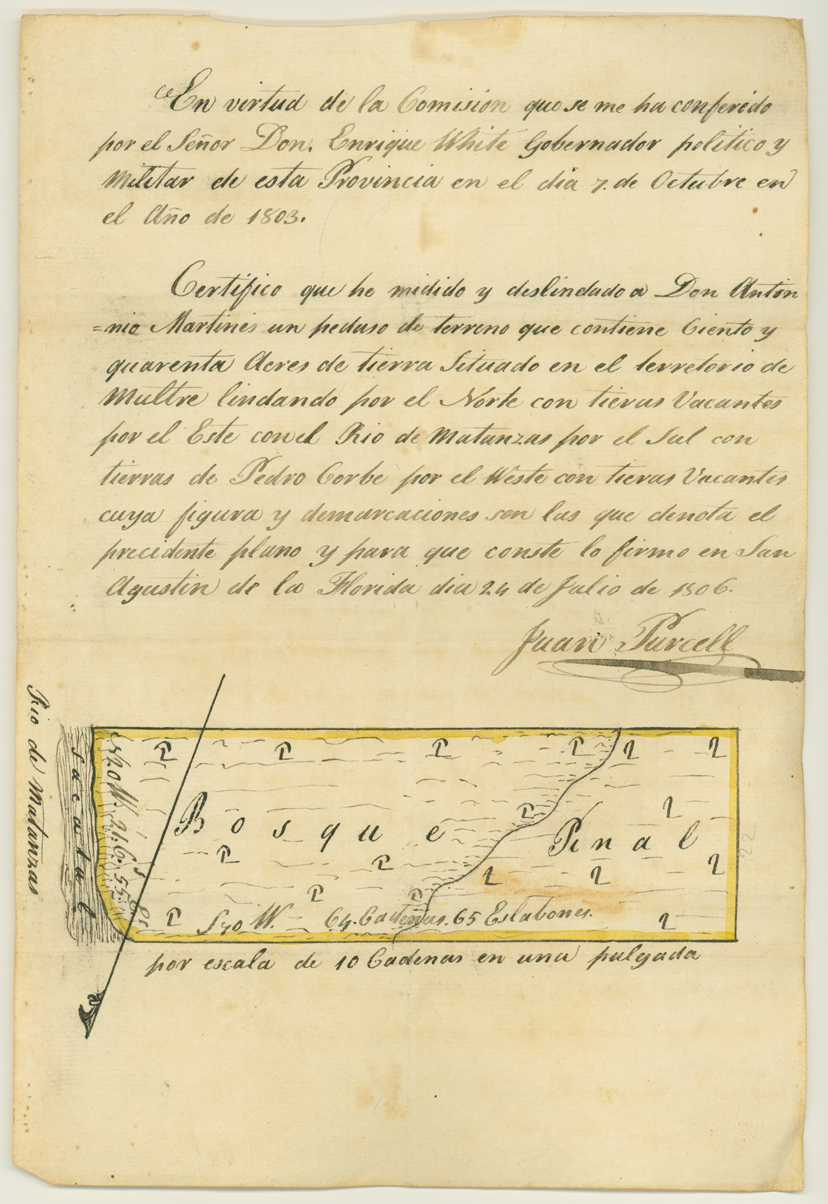 En virtud de la Comision que se me ha conferido
por el Señor Don. Enrique White Gobernador politico y
Militar de esta Provincia en el dia 7. de Octubre en
el Año de 1803.
Certifico que he midido y deslindado a Don Anton
=nio Martines un pedaso de terreno que contiene Ciento y
quarenta Acres de tierra Situado en el terretorio de
Multre lindando por el Norte con tieras Vacantes
por el Este con el Rio de Matanzas por el Sul con
tierras de Pedro Corbe por el Weste con tieras Vacantes
cuya figura y demarcaciones son las que denota el
precidente plano y para que conste lo firmo en San
Agustin de la Florida dia 24 de Julio de 1806.
Juan Purcell
Rio de Matanzas
Sacatal
N20 W. 21. Cs 55 Es
P P P P 1 1
Bosque
Pinal
P 1
P P 1 1 1
P P
P 1
S70 W. 64. Cadenas. 65 Eslabones.
22
por escala de 10 Cadenas en una pulgada